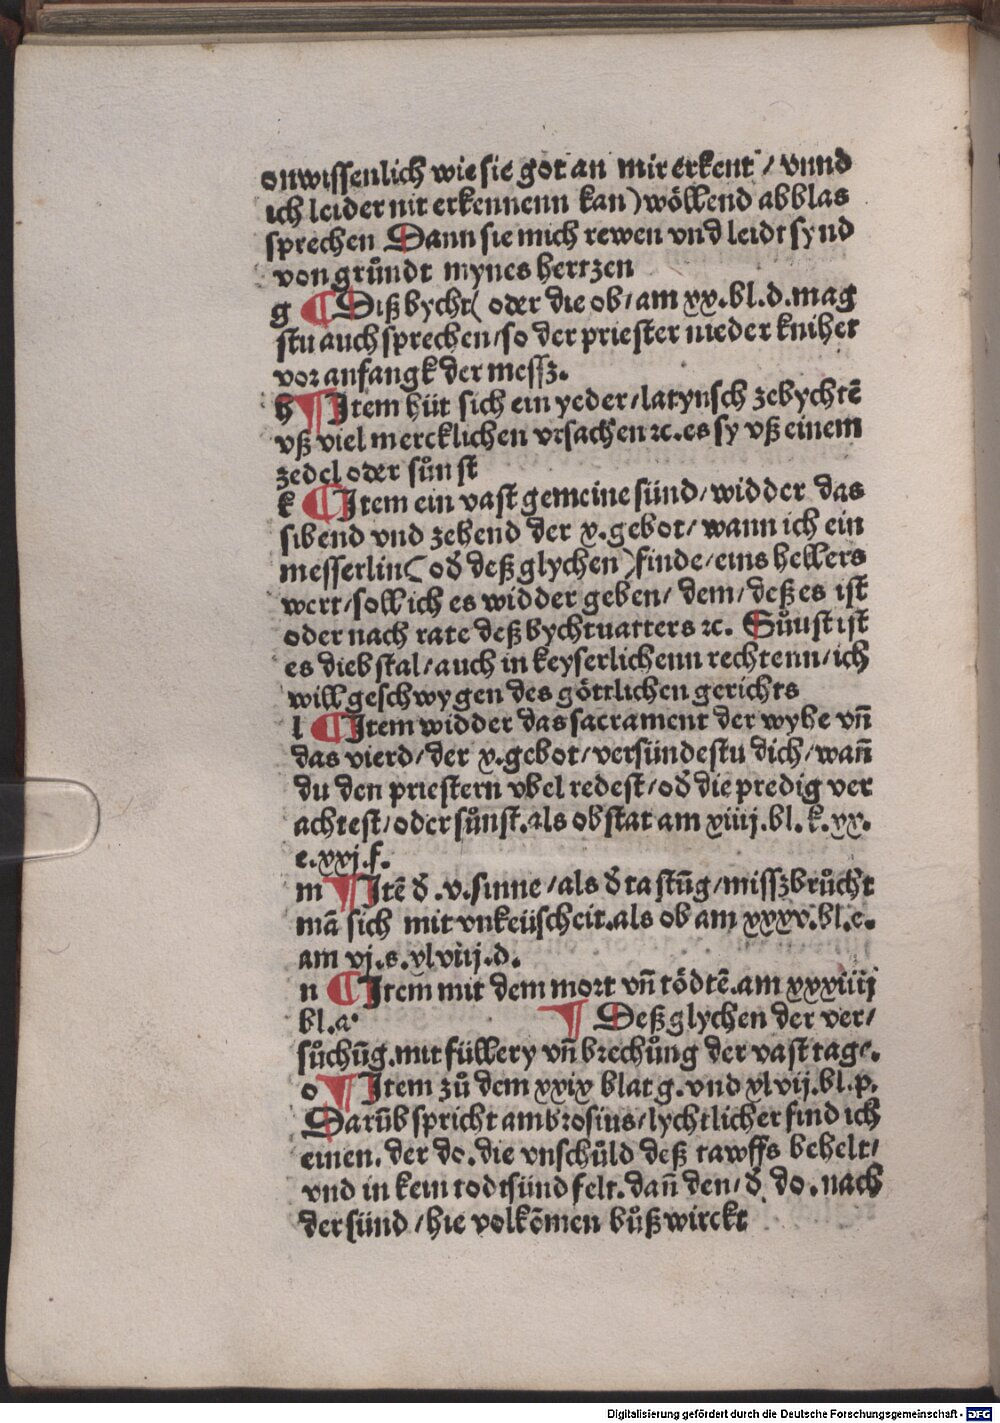 onwissenlich wie sie got an mir erkent / vnnd
ich leider nit erkennenn kan) wöllend abblas
sprechen Dann sie mich rewen vnd leidt synd
von grůndt mynes hertzen
g ¶ Diß bycht( oder die ob/am xx.bl.d.mag
stu auch sprechen/so der priester nieder knihet
vor anfangk der messz.
h ¶ Item hüt sich ein yeder/latynsch zebychtē
vß viel mercklichen vrsachen ⁊c.es sy vß einem
zedel oder sůnst
k ¶ Item ein vast gemeine sünd/widder das
sibend vnd zehend der x.gebot/wann ich ein
messerlin( oð deßglychen)finde/eins hellers
wert/soll ich es widder geben/ dem/deß es ist
oder nach rate deß bychtuatters ⁊c. Sůust ist
es diebstal/auch in keyserlichenn rechtenn/ich
will geschwygen des göttlichen gerichts
l ¶ Item widder das sacrament der wyhe vn̄
das vierd/der x.gebot/versündestu dich/wan̄
du den priestern vbel redest/oð die predig ver
achtest/oder sůnst.als obstat am xiiij.bl.k.xx.
e.xxj.f.
m ¶ Itē ð .v.sinne/als ð tastūg/misszbrůcht
mā sich mit vnkeüscheit.als ob am xxxv.bl.e.
am vj.s.xlviij.d.
n ¶ Item mit dem mort vn̄ tödtē.am xxxiiij
bl.a. ¶ Deßglychen der ver/
sůchūg.mit füllery vn̄ brechůng der vast tage.
o ¶ Item zů dem xxix blat g.vnd xlvij.bl.p.
Darūb spricht ambrosius/lychtlicher find ich
einen.der do.die vnschůld deß tawffs behelt/
vnd in kein todtsünd felt.dan̄ den/ð do.nach
der sünd/hie volkōmen bůß wirckt
Digitalisierung gefördert durch die Deutsche Forschungsgemeinschaft - DFG